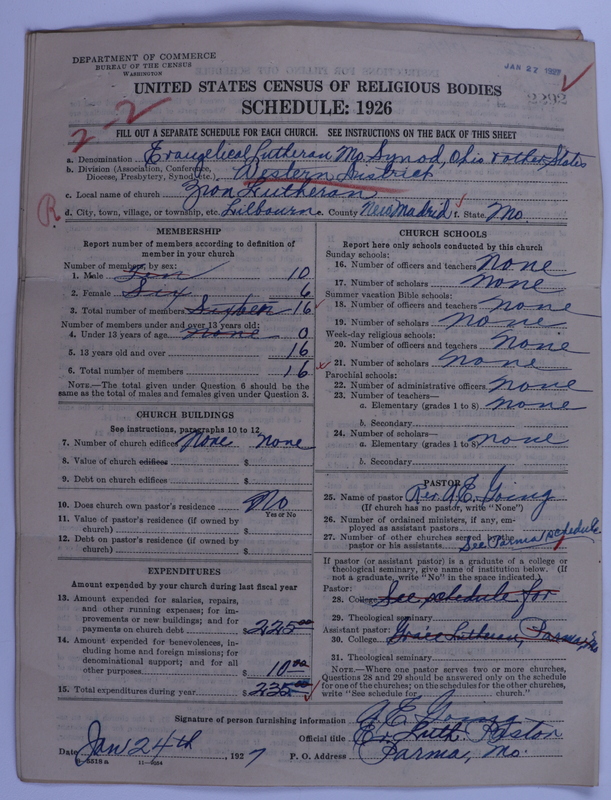 DEPARTMENT OF COMMERCE
BUREAU OF THE CENSUS
WASHINGTON
JAN 27 1927
UNITED STATES CENSUS OF RELIGIOUS BODIES
SCHEDULE: 1926
2-2
FILL OUT A SEPARATE SCHEDULE FOR EACH CHURCH. SEE INSTRUCTIONS ON THE BACK OF THIS SHEET
a. Denomination Evangelical Lutheran Mo Synod, Ohio & other States
b. Division (Association, Conference, Diocese, Presbytery, Synod, etc.) Western District
c. Local name of church Zion Lutheran
R d. City, town, village, or township, etc. Lilbourn e. County New Madrid f. State Mo.
MEMBERSHIP
Report number of members according to definition of
member in your church
Number of members, by sex:
1. Male Ten 10
2. Female Six 6
3. Total number of members Sixteen 16
Number of members under and over 13 years old:
4. Under 13 years of age None 0
5. 13 years old and over 16
6. Total number of members 16
NOTE.—The total given under Question 6 should be the
same as the total of males and females given under Question 3.
CHURCH BUILDINGS
See instructions, paragraphs 10 to 12
7. Number of church edifices None None
8. Value of church edifices $
9. Debt on church edifices $
10. Does church own pastor's residence No
Yes or No
11. Value of pastor's residence (if owned by
church) $
12. Debt on pastor's residence (if owned by
church) $
EXPENDITURES
Amount expended by your church during last fiscal year
13. Amount expended for salaries, repairs,
and other running expenses; for im-
provements or new buildings; and for
payments on church debt $ 225.00
14. Amount expended for benevolences, in-
cluding home and foreign missions; for
denominational support; and for all
other purposes $ 10.00
15. Total expenditures during year $ 235.00
CHURCH SCHOOLS
Report here only schools conducted by this church
Sunday schools:
16. Number of officers and teachers None
17. Number of scholars None
Summer vacation Bible schools:
18. Number of officers and teachers None
19. Number of scholars None
Week-day religious schools:
20. Number of officers and teachers None
21. Number of scholars None
Parochial schools:
22. Number of administrative officers None
23. Number of teachers—
a. Elementary (grades 1 to 8) None
b. Secondary
24. Number of scholars—
a. Elementary (grades 1 to 8) None
b. Secondary
PASTOR
25. Name of pastor Rev. A.E. Going
(If church has no pastor, write "None")
26. Number of ordained ministers, if any, em-
ployed as assistant pastors
27. Number of other churches served by the
pastor or his assistants See Parma schedule
If pastor (or assistant pastor) is a graduate of a college or
theological seminary, give name of institution below. (If
not a graduate, write "No" in the space indicated.)
Pastor:
28. College See schedule for
29. Theological seminary
Assistant pastor:
30. College Grace Lutheran, Parma, Mo
31. Theological seminary
NOTE.—Where one pastor serves two or more churches,
Questions 28 and 29 should be answered only on the schedule
for one of the churches; on the schedules for the other churches,
write "See schedule for church."
Signature of person furnishing information A E Going
Official title Ev. Luth. Pastor
Date Jan 24th, 1927 P. O. Address Parma, Mo.
8-5518 a 11-9084